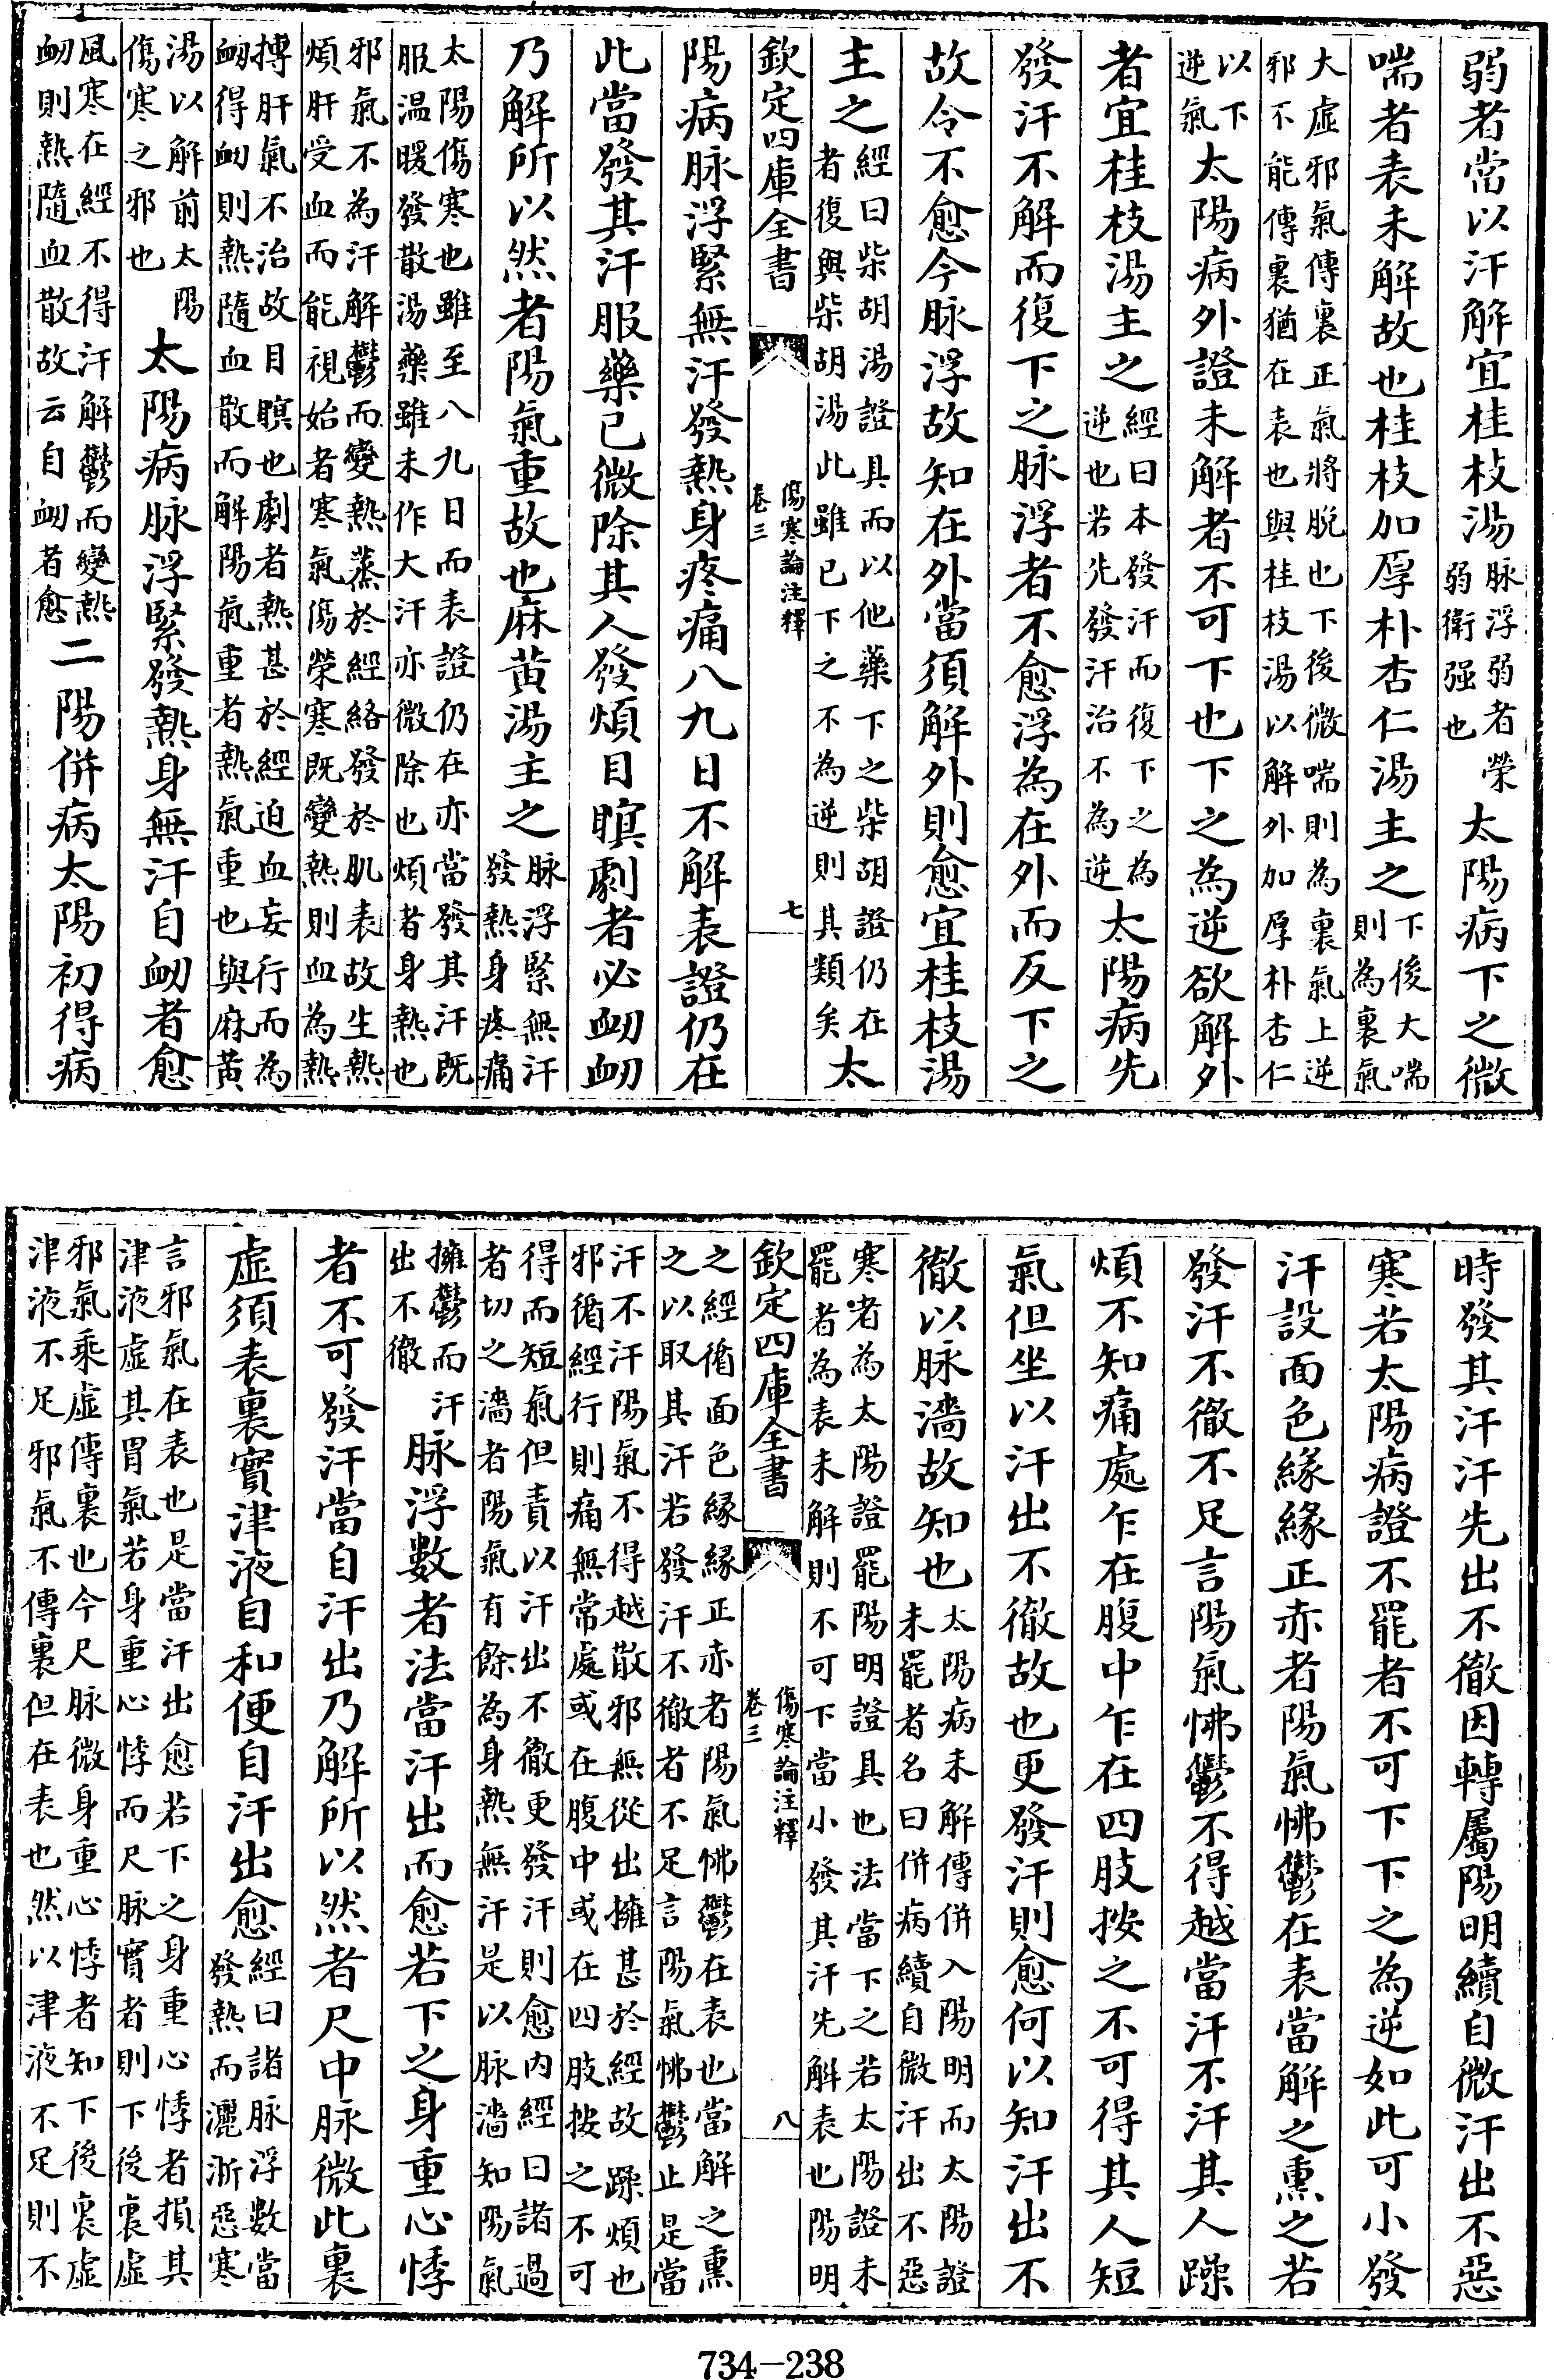 弱者當以汗解宜桂枝湯脉浮弱者榮弱衛强也太陽病下之微
喘者表未解故也桂枝加厚朴杏仁湯主之下後大喘則為裏氣
大虛邪氣傳裏正氣將脫也下後微喘則為裏氣上逆
邪不能傳裏猶在表也與桂枝湯以解外加厚朴杏仁
以下逆氣太陽病外證未解者不可下也下之為逆欲解外
者宜桂枝湯主之經曰本發汗而復下之為逆也若先發汗治不為逆太陽病先
發汗不解而復下之脉浮者不愈浮為在外而反下之
故令不愈今脉浮故知在外當須解外則愈宜桂枝湯
主之經曰柴胡湯證具而以他藥下之柴胡證仍在者復與柴胡湯此雖已下之不為逆則其類矣太
欽定四庫全書
傷寒論注釋
卷三
七
陽病脉浮緊無汗發熱身疼痛八九日不解表證仍在
此當發其汗服藥已微除其人發煩目瞑劇者必衂衂
乃解所以然者陽氣重故也麻黄湯主之脉浮緊無汗發熱身疼痛
太陽傷寒也雖至八九日而表證仍在亦當發其汗既
服温暖發散湯藥雖未作大汗亦微除也煩者身熱也
邪氣不為汗解鬱而變熱蒸於經絡發於肌表故生熱
煩肝受血而能視始者寒氣傷榮寒既變熱則血為熱
搏肝氣不治故目瞑也劇者熱甚於經迫血妄行而為
衂得衂則熱隨血散而解陽氣重者熱氣重也與麻黄
湯以解前太陽傷寒之邪也太陽病脉浮緊發熱身無汗自衂者愈
風寒在經不得汗解鬱而變熱衂則熱隨血散故云自衂者愈二陽併病太陽初得病
時發其汗汗先出不徹因轉屬陽明續自微汗出不惡
寒若太陽病證不罷者不可下下之為逆如此可小發
汗設面色緣緣正赤者陽氣怫鬱在表當解之熏之若
發汗不徹不足言陽氣怫鬱不得越當汗不汗其人躁
煩不知痛處乍在腹中乍在四肢按之不可得其人短
氣但坐以汗出不徹故也更發汗則愈何以知汗出不
徹以脉濇故知也太陽病未解傳併入陽明而太陽證未罷者名曰併病續自微汗出不惡
寒者為太陽證罷陽明證具也法當下之若太陽證未
罷者為表未解則不可下當小發其汗先解表也陽明
欽定四庫全書
傷寒論注釋
卷三
八
之經循面色緣緣正赤者陽氣怫鬱在表也當解之熏
之以取其汗若發汗不徹者不足言陽氣怫鬱止是當
汗不汗陽氣不得越散邪無從出擁甚於經故躁煩也
邪循經行則痛無常處或在腹中或在四肢按之不可
得而短氣但責以汗出不徹更發汗則愈内經曰諸過
者切之濇者陽氣有餘為身熱無汗是以脉濇知陽氣
擁鬱而汗出不徹脉浮數者法當汗出而愈若下之身重心悸
者不可發汗當自汗出乃解所以然者尺中脉微此裏
虛須表裏實津液自和便自汗出愈經曰諸脉浮數當發熱而灑淅惡寒
言邪氣在表也是當汗出愈若下之身重心悸者損其
津液虛其胃氣若身重心悸而尺脉實者則下後裏虛
邪氣乘虛傳裏也今尺脉微身重心悸者知下後裏虛
津液不足邪氣不傳裏但在表也然以津液不足則不
734–238